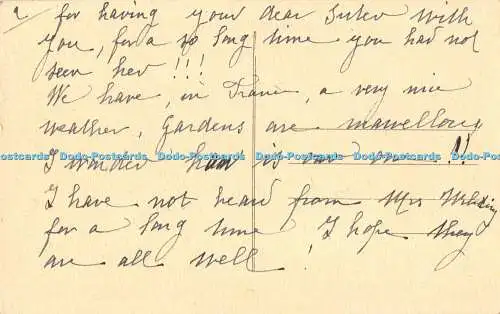 2/ for having your dear sister with
you, for a so long time you had not
seen her !!!
We have, in France, a very nice
weather, Gardens are marvellous
Dodo-Postcards Dodo-Postcards Dodo-Postcards Dodo-Postcards Dodo-Postcards
I wonder how is !!
I have not heard from Mrs
for a long time. I hope they
are all well !